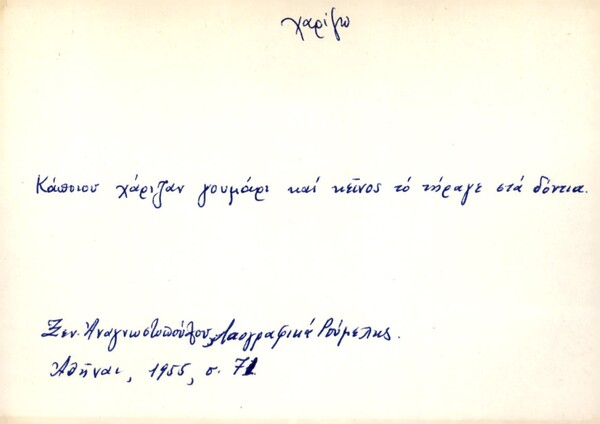 χαρίζω
Κάποιου χάριζαν γουμάρι καί κεῖνος τό τήραγε στά δόντια.
Ξεν. Ἀναγνωστοπούλου, Λαογραφικά Ρούμελης.
Ἀθῆναι, 1955, σ. 71